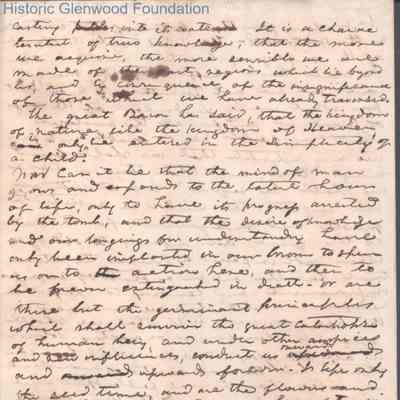 Historic Glenwood Foundation
casting into it It is a charac
teristic of true knowledge, that the more
we acquire, the more sensible we are
made of the vast regions which lie beyond
us, and by consequence, of the insignificance
of those which we have already traversed.
The great Bacon has said "that the kingdom
of nature, like the kingdom of Heaven,
can only be entered in the simplicity of
a child."
Now Can it be that the mind of man
grows and expands to the latest hour
of life, only to have its progress arrested
by the tomb, and that the desire of knowledge
and our longings for understanding have
only been implanted in our bosoms to
us on to action here, and then to
be extinguished in death. or are
these but the germinant principles
which shall survive the great catastrophe
of human being, and under other auspices
and influences, conduct us onwards
and upwards forever. Is life only
the seed time, and are the flowers and